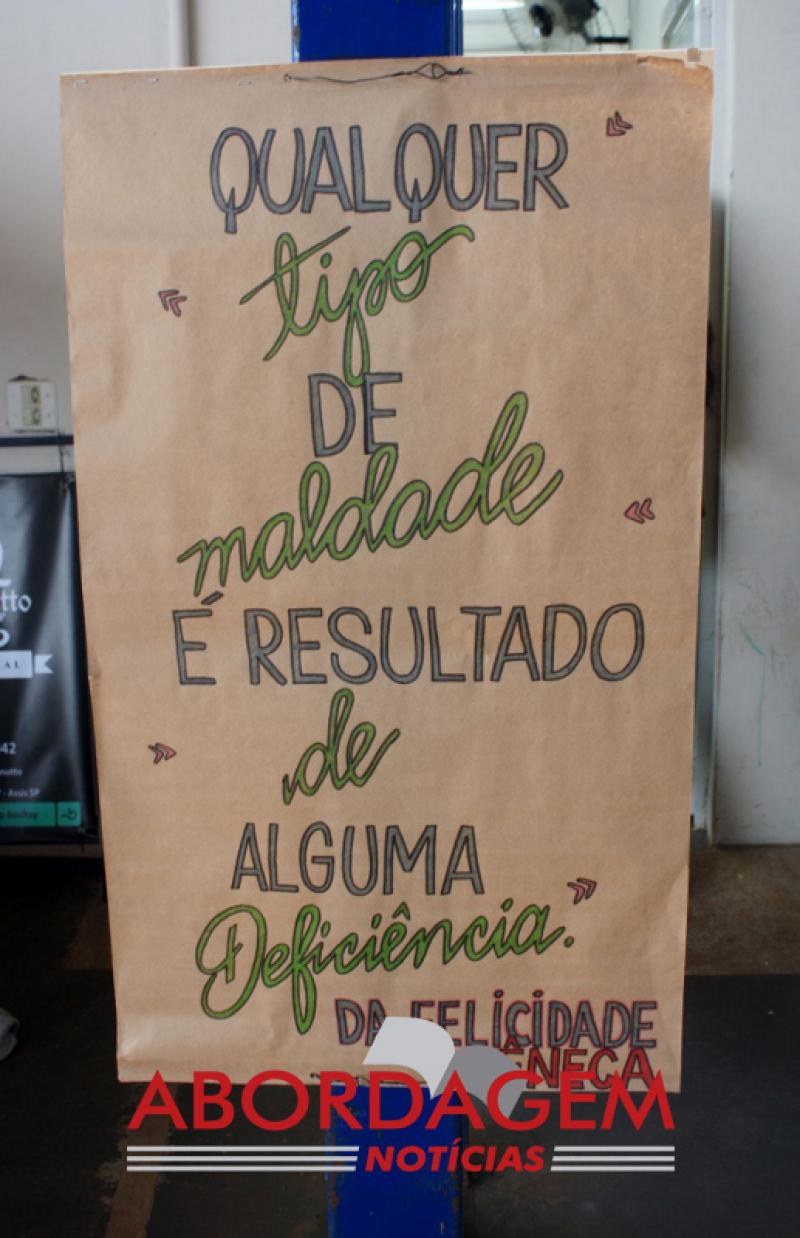 QUALQUER
tipo
DE
maldade
É RESULTADO
de
ALGUMA
Deficiência.
DA FELICIDADE
ÊNECA
ABORDAGEM
NOTÍCIAS
tto
AL
42
nutto
- Assis SP
p Booksy